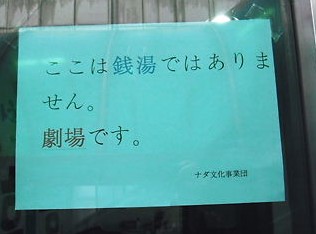 ここは銭湯ではありま
せん。
劇場です。
ナダ文化事業団